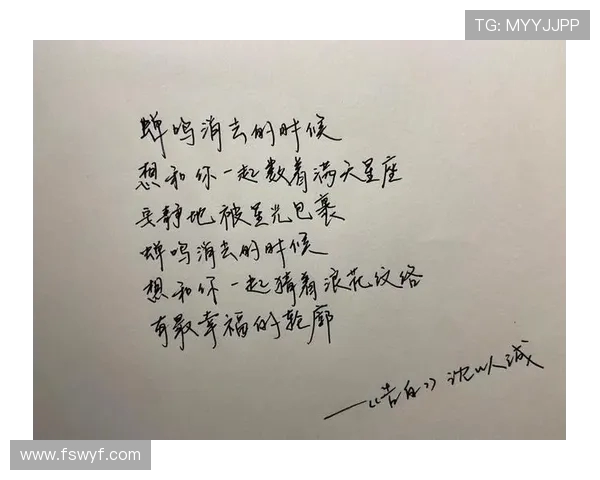 TG: MYYJJPP
蝉鸣消去的时候
想和你一起数着满天星座
安静地被星光包裹
蝉鸣消去的时候
想和你一起猜着浪花纹络
有最幸福的轮廓
——《告白》沈以诚
www.fswyf.com